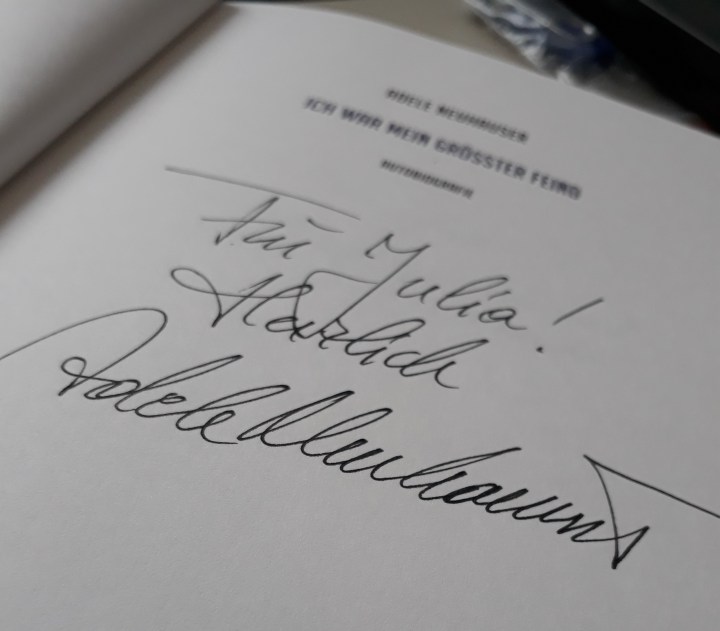 ADELE NEUHAUSER
ICH WAR MEIN GRÖSSTER FEIND
AUTOBIOGRAFIE
Für Julia!
Herzlich
Adele Neuhauser